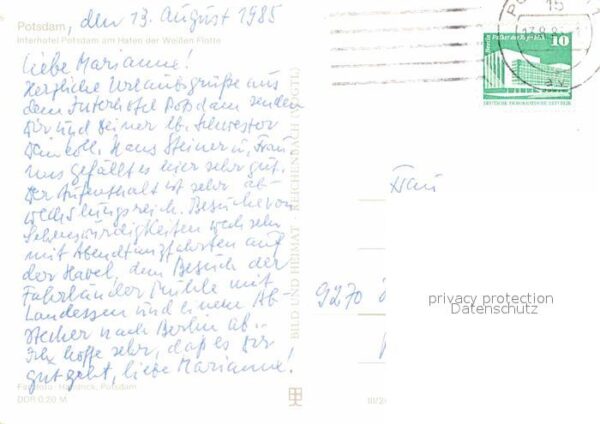 Potsdam, den 13. August 1985
Interhotel Potsdam am Hafen der Weißen Flotte
Liebe Marianne!
Herzliche Urlaubsgrüße aus
dem Interhotel Potsdam senden
Dir und Deiner lb. Schwester
Dein Koll. Hans Steiner u. Frau
uns gefällt es hier sehr gut.
Der Aufenthalt ist sehr ab-
wechslungsreich. Besuche von
Sehenswürdigkeiten wechseln
mit Abendtanzfahrten auf
der Havel, dem Besuch der
Fahrländer Mühle mit
Landessen und einem Ab-
stecher nach Berlin ab.
Ich hoffe sehr, daß es Dir
gut geht, liebe Marianne!
DDR 0,20 M
BILD UND HEIMAT REICHENBACH (VOGTL)
15
10
DEUTSCHE DEMOKRATISCHE REPUBLIK
Frau
9270
privacy protection
Datenschutz